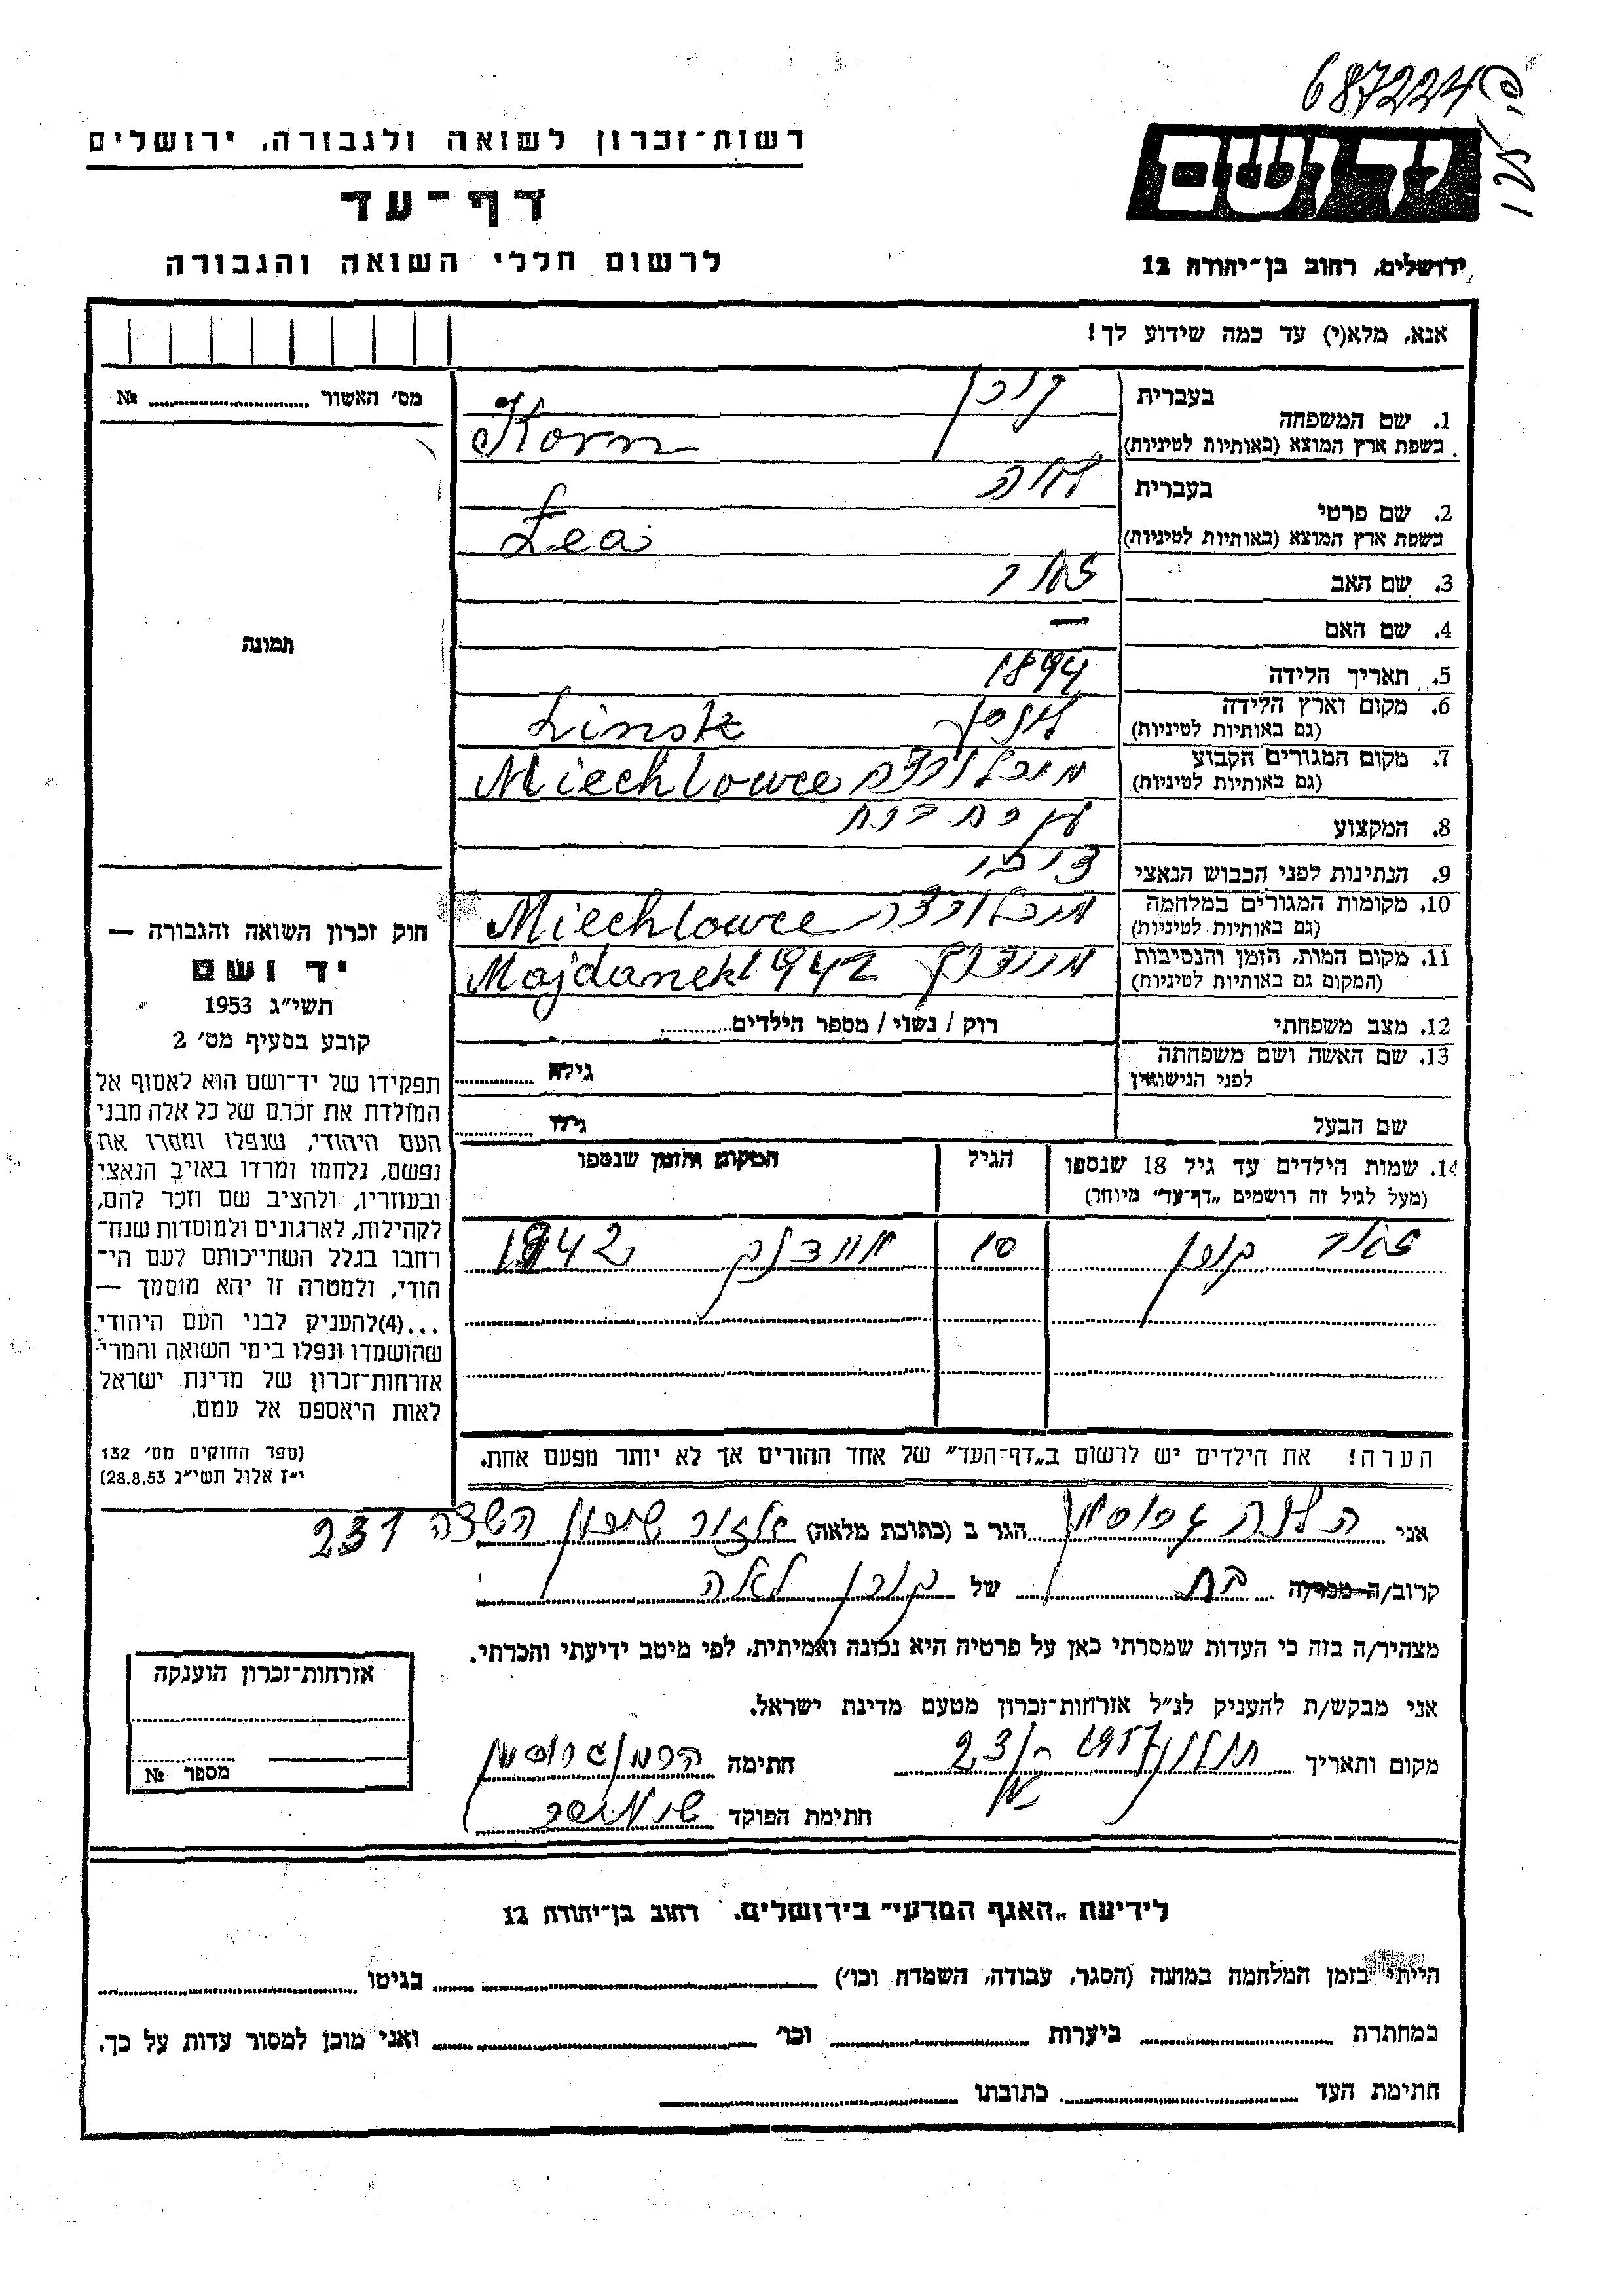 687224
רשות־זכרון לשואה ולגבורה, ירושלים
דף־עד
לרשום חללי השואה והגבורה
יד ושם
ירושלים, רחוב בן־יהודה 12
אנא, מלא(י) עד כמה שידוע לך!
מס׳ האשור № 
תמונה
1. שם המשפחה
בעברית קורן
בשפת ארץ המוצא (באותיות לטיניות) Korn
2. שם פרטי
בעברית לאה
בשפת ארץ המוצא (באותיות לטיניות) Lea
3. שם האב
4. שם האם —
5. תאריך הלידה 1894
6. מקום וארץ הלידה
(גם באותיות לטיניות) Linsk
7. מקום המגורים הקבוע
(גם באותיות לטיניות) Miechlowce
8. המקצוע עקרת בית
9. הנתינות לפני הכבוש הנאצי
10. מקומות המגורים במלחמה
(גם באותיות לטיניות) Miechlowce
11. מקום המות, הזמן והנסיבות
(המקום גם באותיות לטיניות) מיידנק 1942 Majdanek
12. מצב משפחתי רוק / נשוי / מספר הילדים
13. שם האשה ושם משפחתה
לפני הנישואין גילה
שם הבעל גילו
14. שמות הילדים עד גיל 18 שנספו הגיל המקום והזמן שנספו
(מעל לגיל זה רושמים „דף־עד״ מיוחד)
קורן 10 1942
הערה! את הילדים יש לרשום ב„דף־העד״ של אחד ההורים אך לא יותר מפעם אחת.
חוק זכרון השואה והגבורה —
יד ושם
תשי״ג 1953
קובע בסעיף מס׳ 2
תפקידו של יד־ושם הוא לאסוף אל
המולדת את זכרם של כל אלה מבני
העם היהודי, שנפלו ומסרו את
נפשם, נלחמו ומרדו באויב הנאצי
ובעוזריו, ולהציב שם וזכר להם,
לקהילות, לארגונים ולמוסדות שנח־
רחבו בגלל השתייכותם לעם הי־
הודי, ולמטרה זו יהא מוסמך —
...(4)להעניק לבני העם היהודי
שהושמדו ונפלו בימי השואה והמרי
אזרחות־זכרון של מדינת ישראל
לאות היאספם אל עמם.
(ספר החוקים מס׳ 132
י״ז אלול תשי״ג 28.8.53)
אני הגר ב (כתובת מלאה) 231
קרוב/ה מכר/ה בת של קורן לאה
מצהיר/ה בזה כי העדות שמסרתי כאן על פרטיה היא נכונה ואמיתית, לפי מיטב ידיעתי והכרתי.
אני מבקש/ת להעניק לנ״ל אזרחות־זכרון מטעם מדינת ישראל.
מקום ותאריך חולון 1957 23 חתימה
חתימת הפוקד
אזרחות־זכרון הוענקה
מספר №
לידיעת „האגף המדעי״ בירושלים. רחוב בן־יהודה 12
הייתי בזמן המלחמה במחנה (הסגר, עבודה, השמדה וכו׳) בגיטו
במחתרת ביערות וכו׳ ואני מוכן למסור עדות על כך.
חתימת העד כתובתו